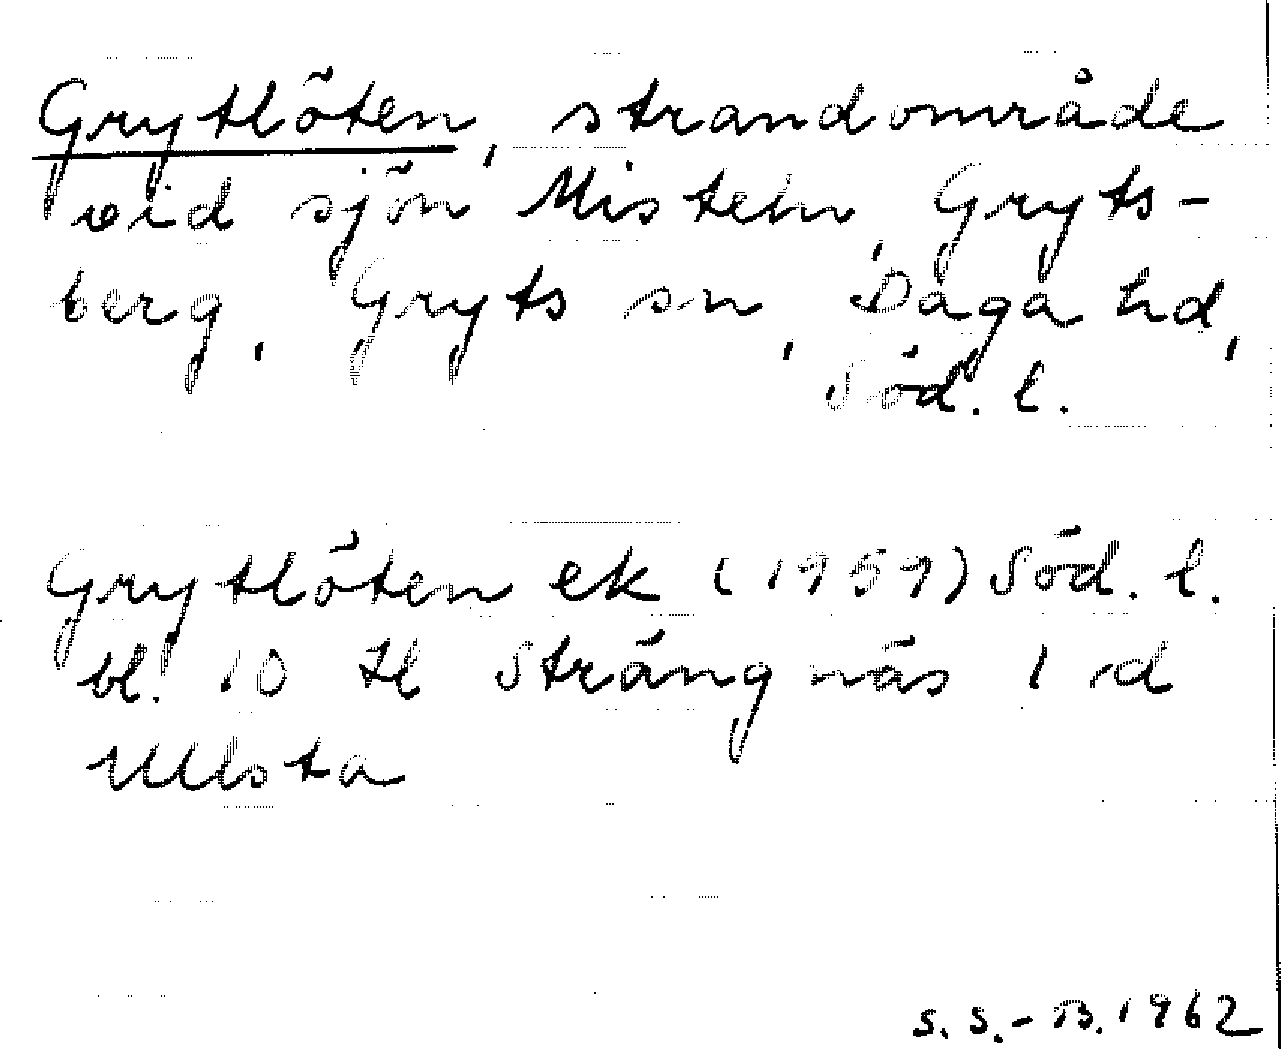 Grytlöten, strandområde
vid sjön Misteln, Gryts-
berg, Gryts sn, Daga hd,
Söd. l.
Grytlöten ek (1959) Söd. l.
bl. 10 tl Strängnäs 1 d
Ullsta
S. S.-B. 1962